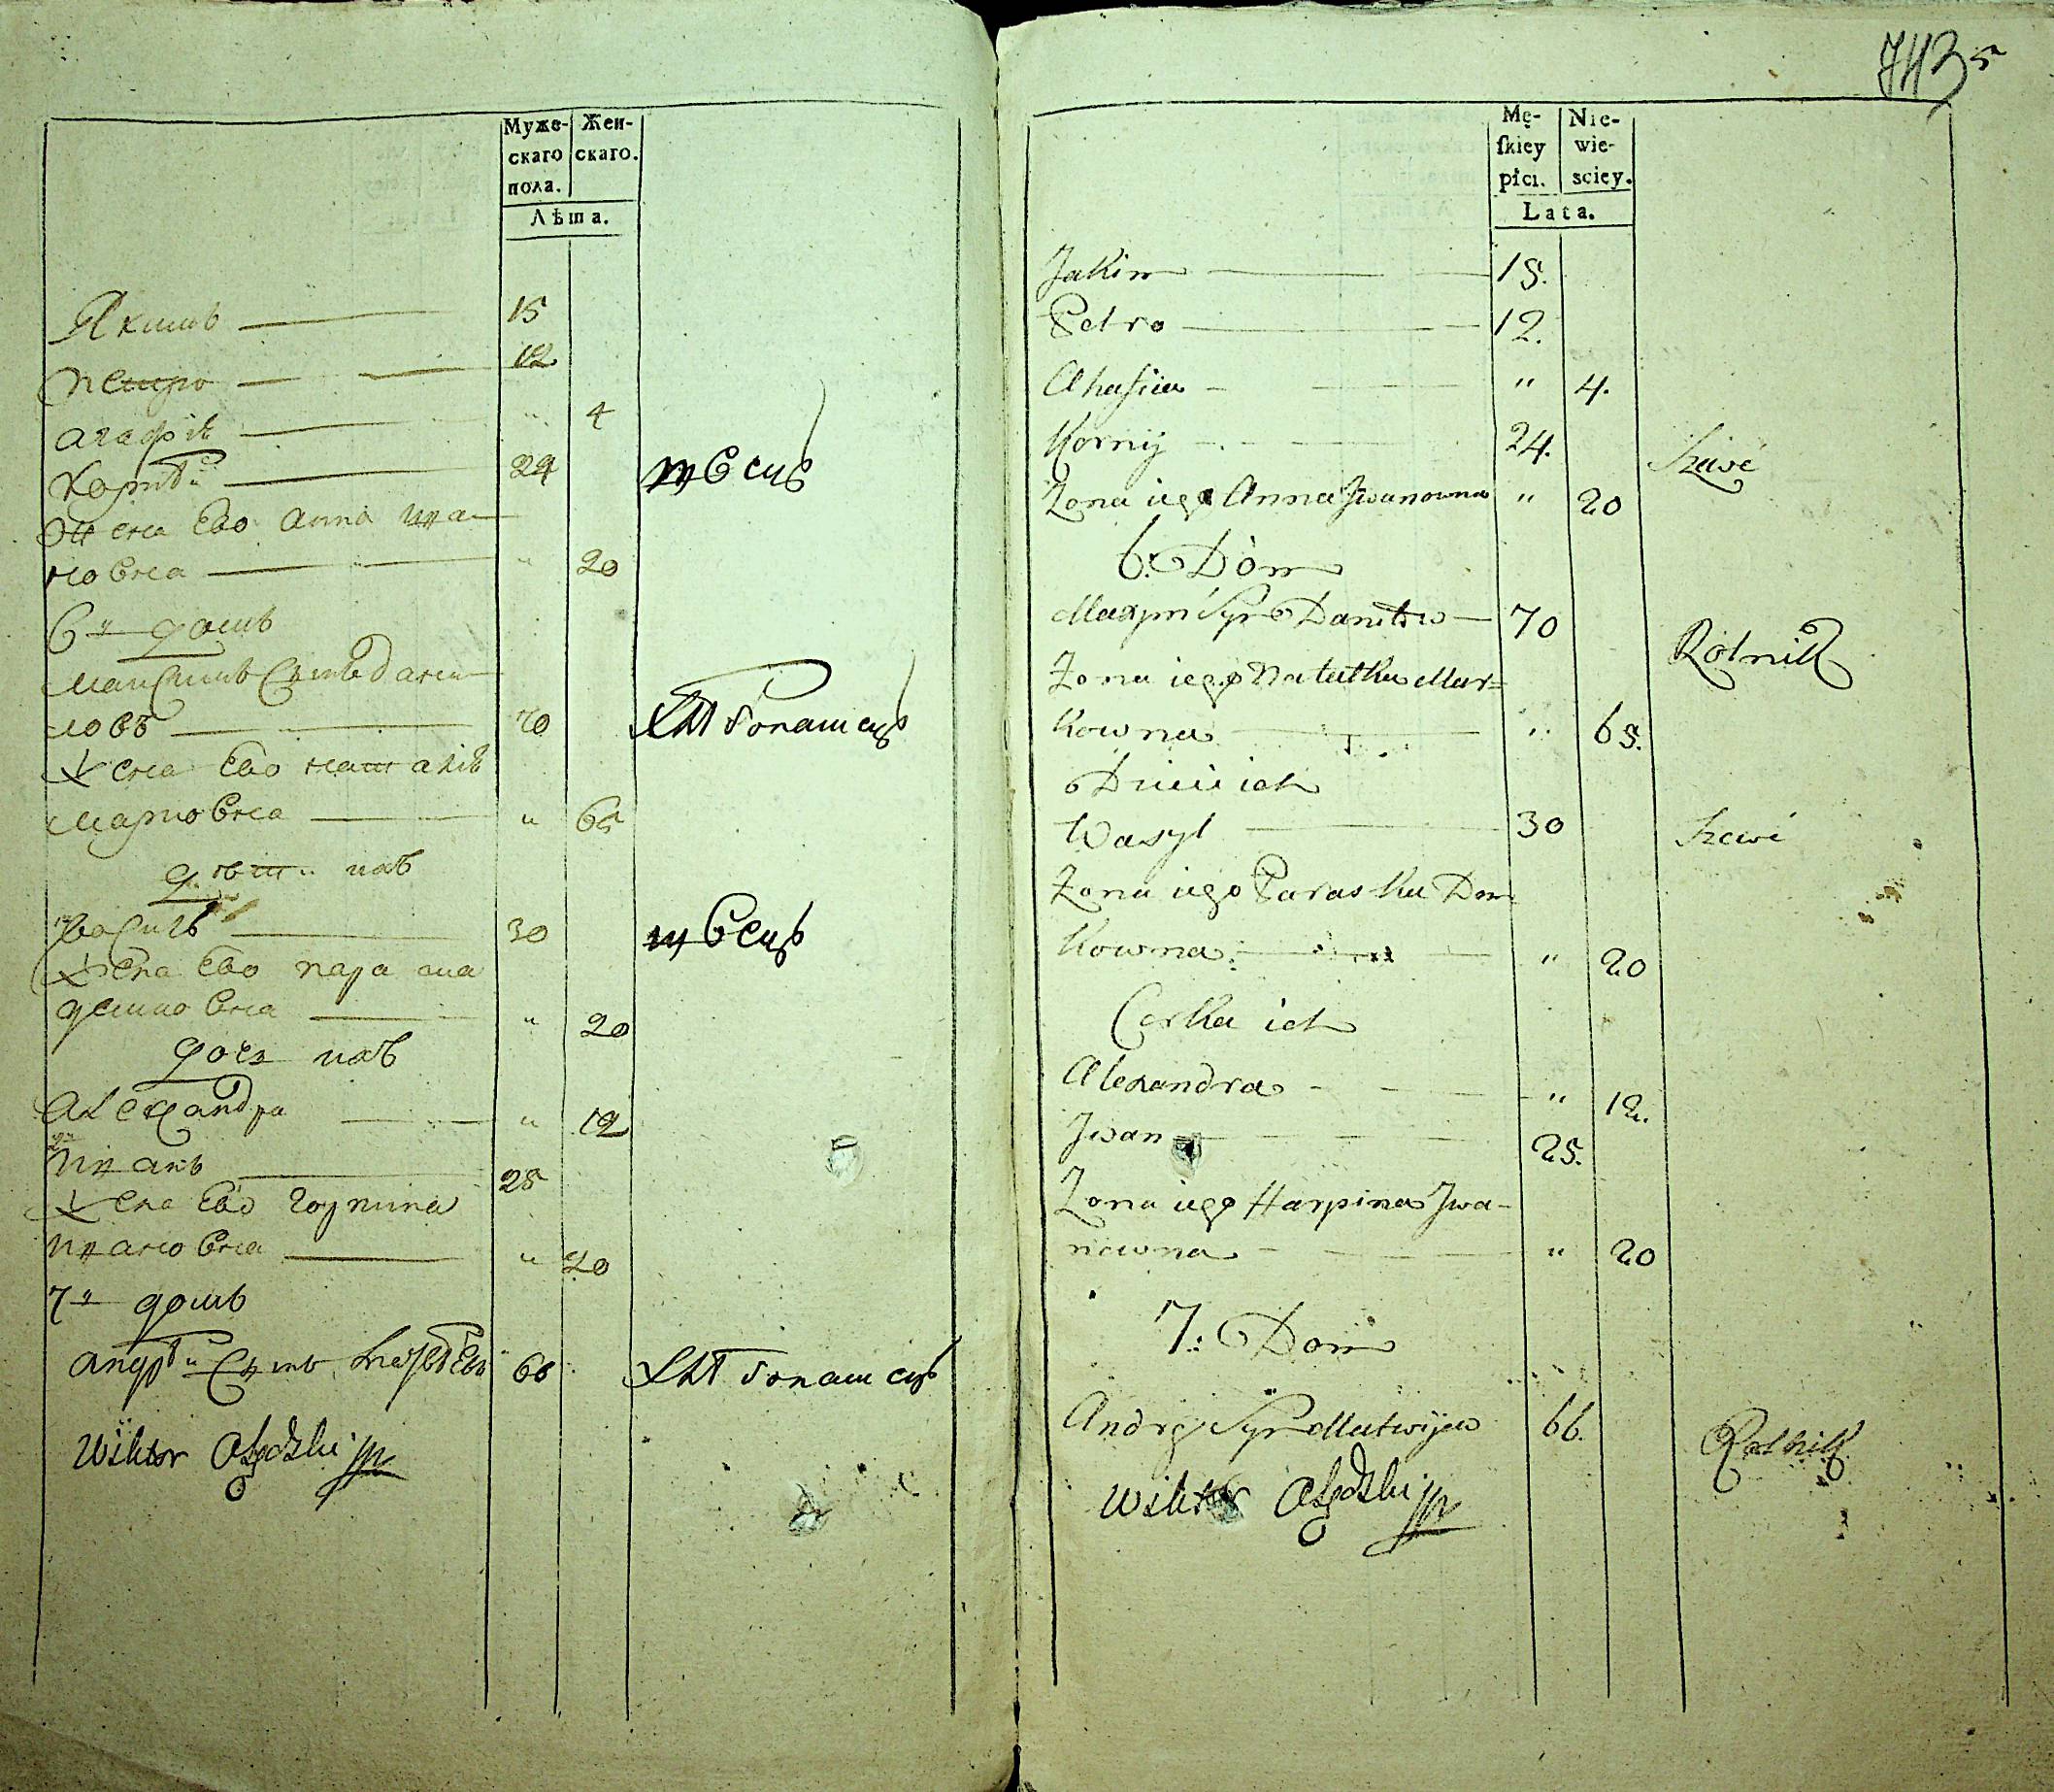 Муже-
скаго
пола.
Жен-
скаго.
Лѣта.
Якимъ 15
Петро 12
Агафія " 4
Корнѣй 24 швецъ
Жена Ево Анна Ива-
новна " 20
6й домъ
Максимъ Сынъ Дани-
ловъ 70 хлѣбопашецъ
Жена Ево Наталія
Марковна " 65
дѣти ихъ
Василь 30 швецъ
Жена Ево Параска
демковна " 20
дочь ихъ
Александра " 12
Иванъ 25
Жена Ево Горпина
Ивановна " 20
7й домъ
Андрѣй Сынъ Матвѣевъ 66 хлѣбопашецъ
Wiktor
743 5
Mę-
ſkiey
płci.
Nie-
wie-
sciey.
Lata.
Jakim 15.
Petro 12.
Ahafiia " 4.
Korniy 24. Szewc
Zona iego Anna Jwanowna " 20
6: Dom
Maxym Syn Daniłow 70 Rolnik
Zona iego Natałka Mar=
kowna " 65.
Dzieci ich
Wasyl 30 Szewc
Zona iego Paraska Dem
kowna " 20
Corka ich
Alexandra " 12.
Jwan 25.
Zona iego Harpina Jwa-
nowna " 20
7: Dom
Andrey Syn Matwijew 66. Rolnik
Wiktor